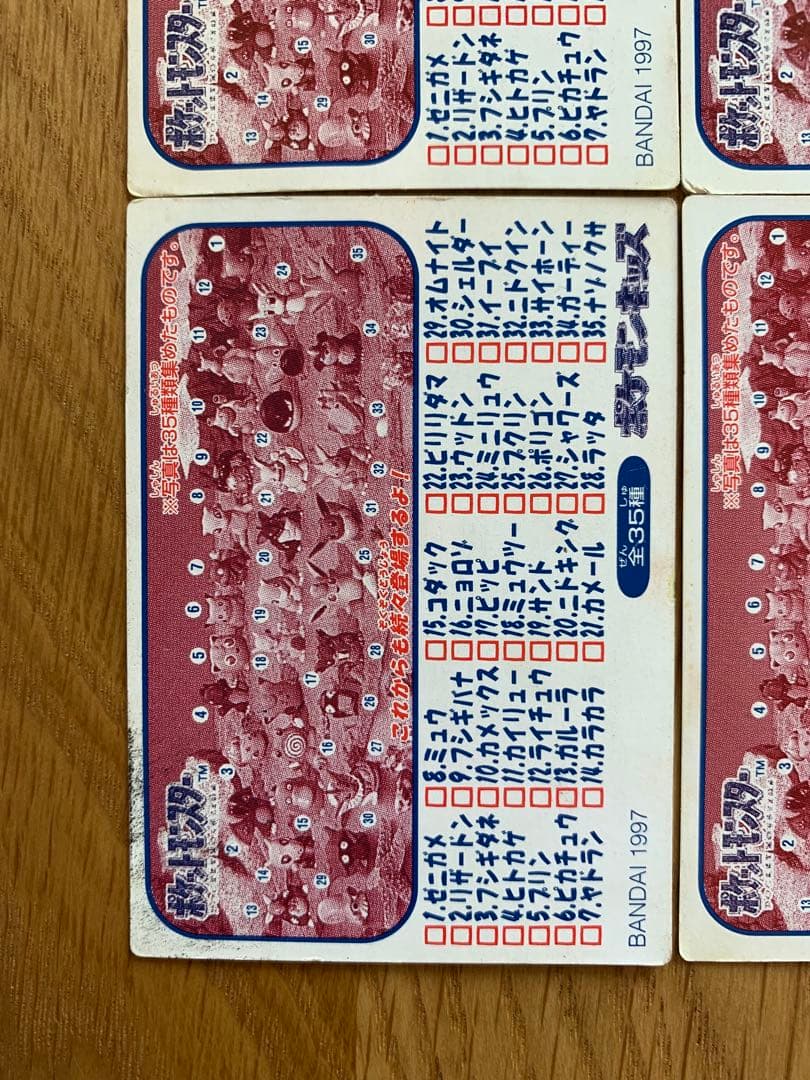 ポケットモンスター™
※写真は35種類集めたものです。
しゃしん
しゅるいあつ
これからも続々登場するよ!
ぞくぞくとうじょう
1.ゼニガメ
2.リザードン
3.フシギダネ
4.ヒトカゲ
5.プリン
6.ピカチュウ
7.ヤドラン
8.ミュウ
9.フシギバナ
10.カメックス
11.カイリュー
12.ライチュウ
13.ガルーラ
14.カラカラ
15.コダック
16.ニョロゾ
17.ピッピ
18.ミュウツー
19.サンド
20.ニドキング
21.カメール
22.ビリリダマ
23.ウツドン
24.ミニリュウ
25.プクリン
26.ポリゴン
27.シャワーズ
28.ラッタ
29.オムナイト
30.シェルダー
31.イーブイ
32.ニドクイン
33.サイホーン
34.ガーディー
35.ナゾノクサ
BANDAI 1997
ぜん しゅ
全35種
ポケモンキッズ
ポケットモンスター
1.ゼニガメ
2.リザードン
3.フシギダネ
4.ヒトカゲ
5.プリン
6.ピカチュウ
7.ヤドラン
BANDAI 1997
ポケットモンスター™
※写真は35種類集めたものです。
しゃしん
しゅるいあつ